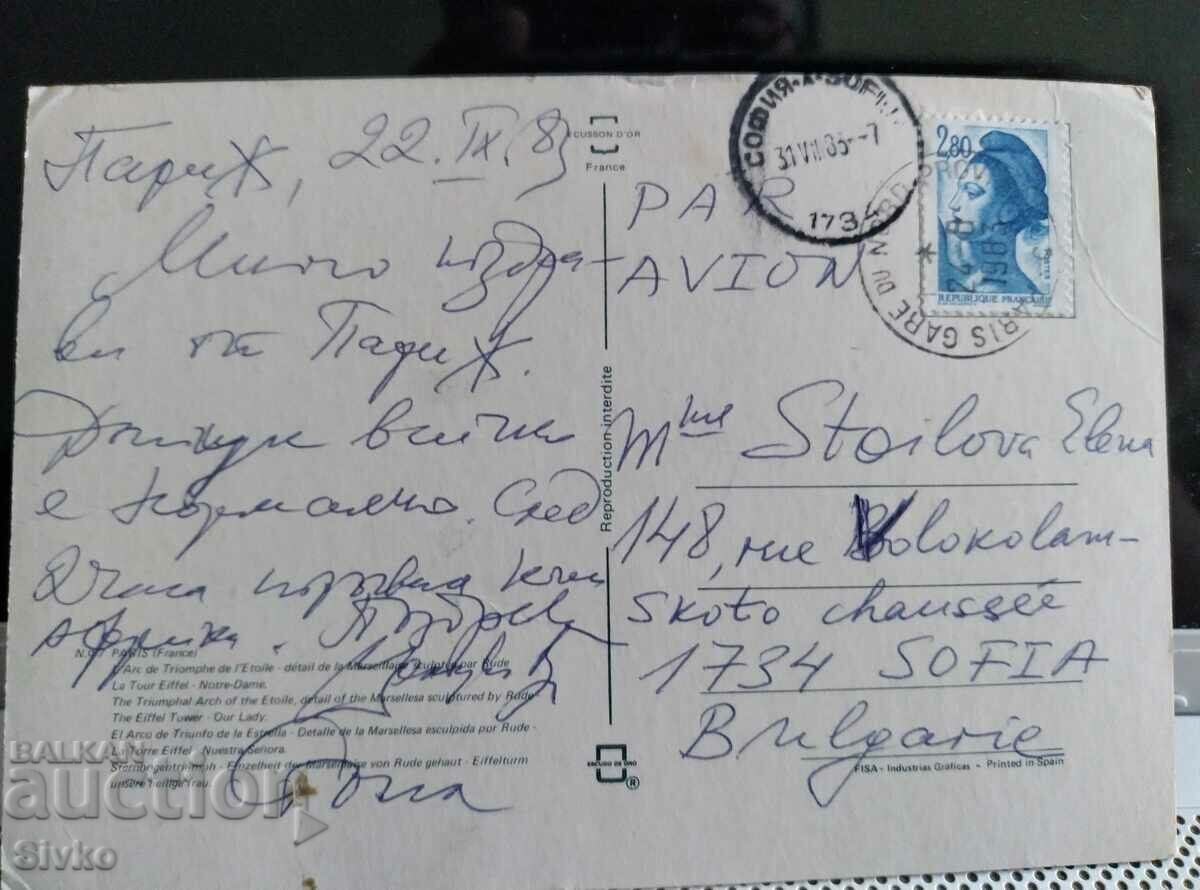 Париж, 22.IX.83
Много поздра-
ви от Париж.
Дотук всичко
е нормално. След
2 часа
Африка.
N.º 7 PARIS (France)
L'Arc de Triomphe de l'Etoile - détail de la Marseillaise sculptée par Rude
La Tour Eiffel - Notre-Dame.
The Triumphal Arch of the Etoile, detail of the Marsellesa sculptured by Rude
The Eiffel Tower - Our Lady.
El Arco de Triunfo de la Estrella - Detalle de la Marsellesa esculpida por Rude -
La Torre Eiffel - Nuestra Señora.
Einzelheit der Marseillaise von Rude gehaut - Eiffelturm
unsere heilige frau.
ECUSSON D'OR
France
Reproduction interdite
ESCUDO DE ORO
®
СОФИЯ·А·SOFI
31 VIII 83.--7
1734
2,80
REPUBLIQUE FRANÇAISE
POSTES
PARIS GARE DU NORD PROV
24 - 8
1983
PAR
AVION
Mme Stoilova Elena
148, rue Volokolam-
skoto chaussée
1734 SOFIA
Bulgarie
FISA - Industrias Gráficas - Printed in Spain
BALKAN
auction
Sivko